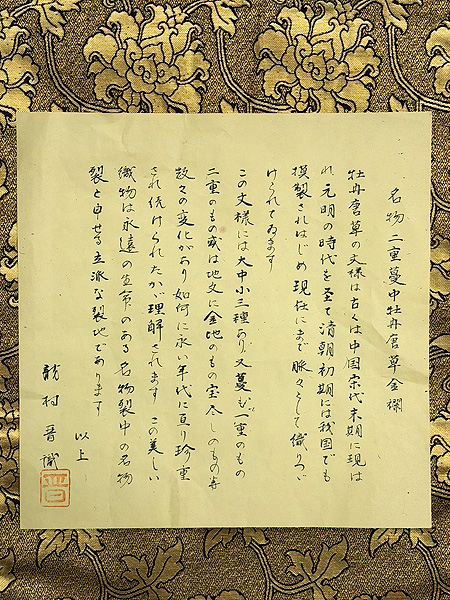 名物 二重蔓中牡丹唐草金襴
牡丹唐草の文様は古くは中国宋代末期に現は
れ元明の時代を至て清朝初期には我国でも
模製されはじめ現在にまで脈々として織りつゞ
けられてゐます
この文様には大中小三種あり又蔓も一重のもの
二重のもの或は地文に金地のもの宝尽しのもの等
数々の変化があり如何に永い年代に亘り珍重
され続けられたかゞ理解されます この美しい
織物は永遠の生命のある名物裂中の名物
裂と申せる立派な裂地であります
以上
龍村晋識
晋